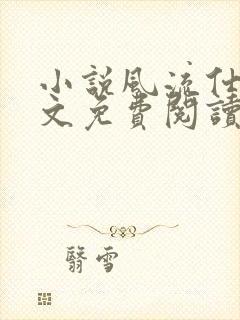 小說風流仕
文免費閱讀
翳雪